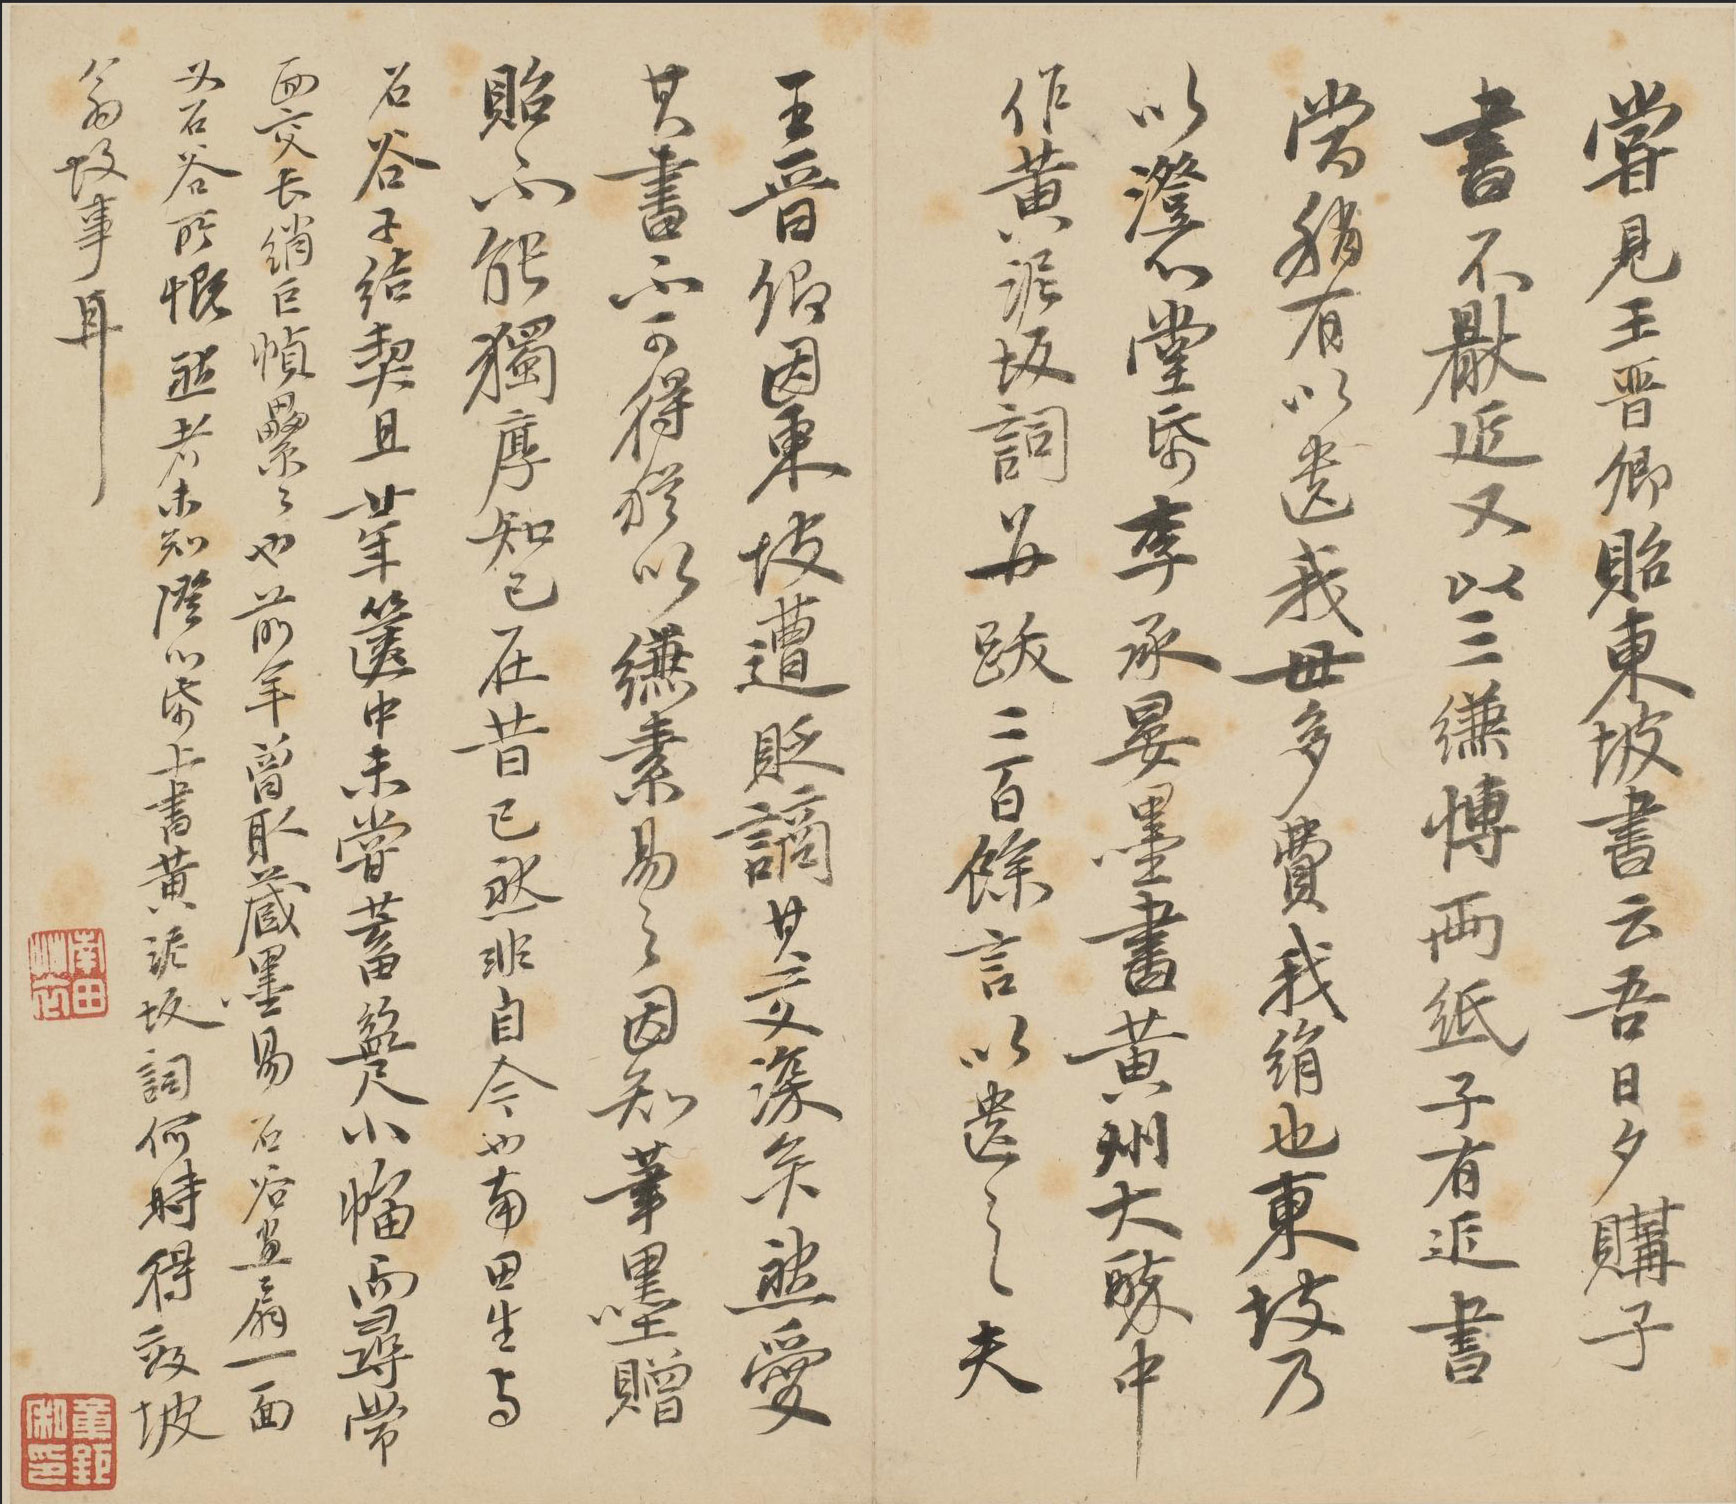 嘗見王晉卿貽東坡書云吾日夕購子
書不厭近又以三縑博兩紙子有近書
當稍有以遺我毋多費我絹也東坡乃
以澄心堂紙李承晏墨書黃州大醉中
作黃泥坂詞并跋二百餘言以遺之夫
王晉卿因東坡遭貶謫其交深矣然愛
其書不可得猶以縑素易之因知筆墨贈
貽不能獨厚知己在昔已然非自今也南田生与
石谷子結契且廿年篋中未嘗蓄盈尺小幅而尋常
面交長綃巨幀纍纍也前年曾取藏墨易石谷畫扇一面
又石谷所慨然者未知澄心紙上書黃泥坂詞何時得效坡
翁故事耳
南田
董邦